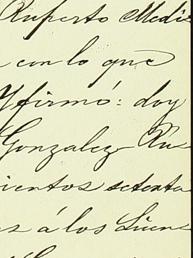 Ruperto Medi
con lo que
y firmó: doy
Gonzalez Ru
cientos setenta
á los